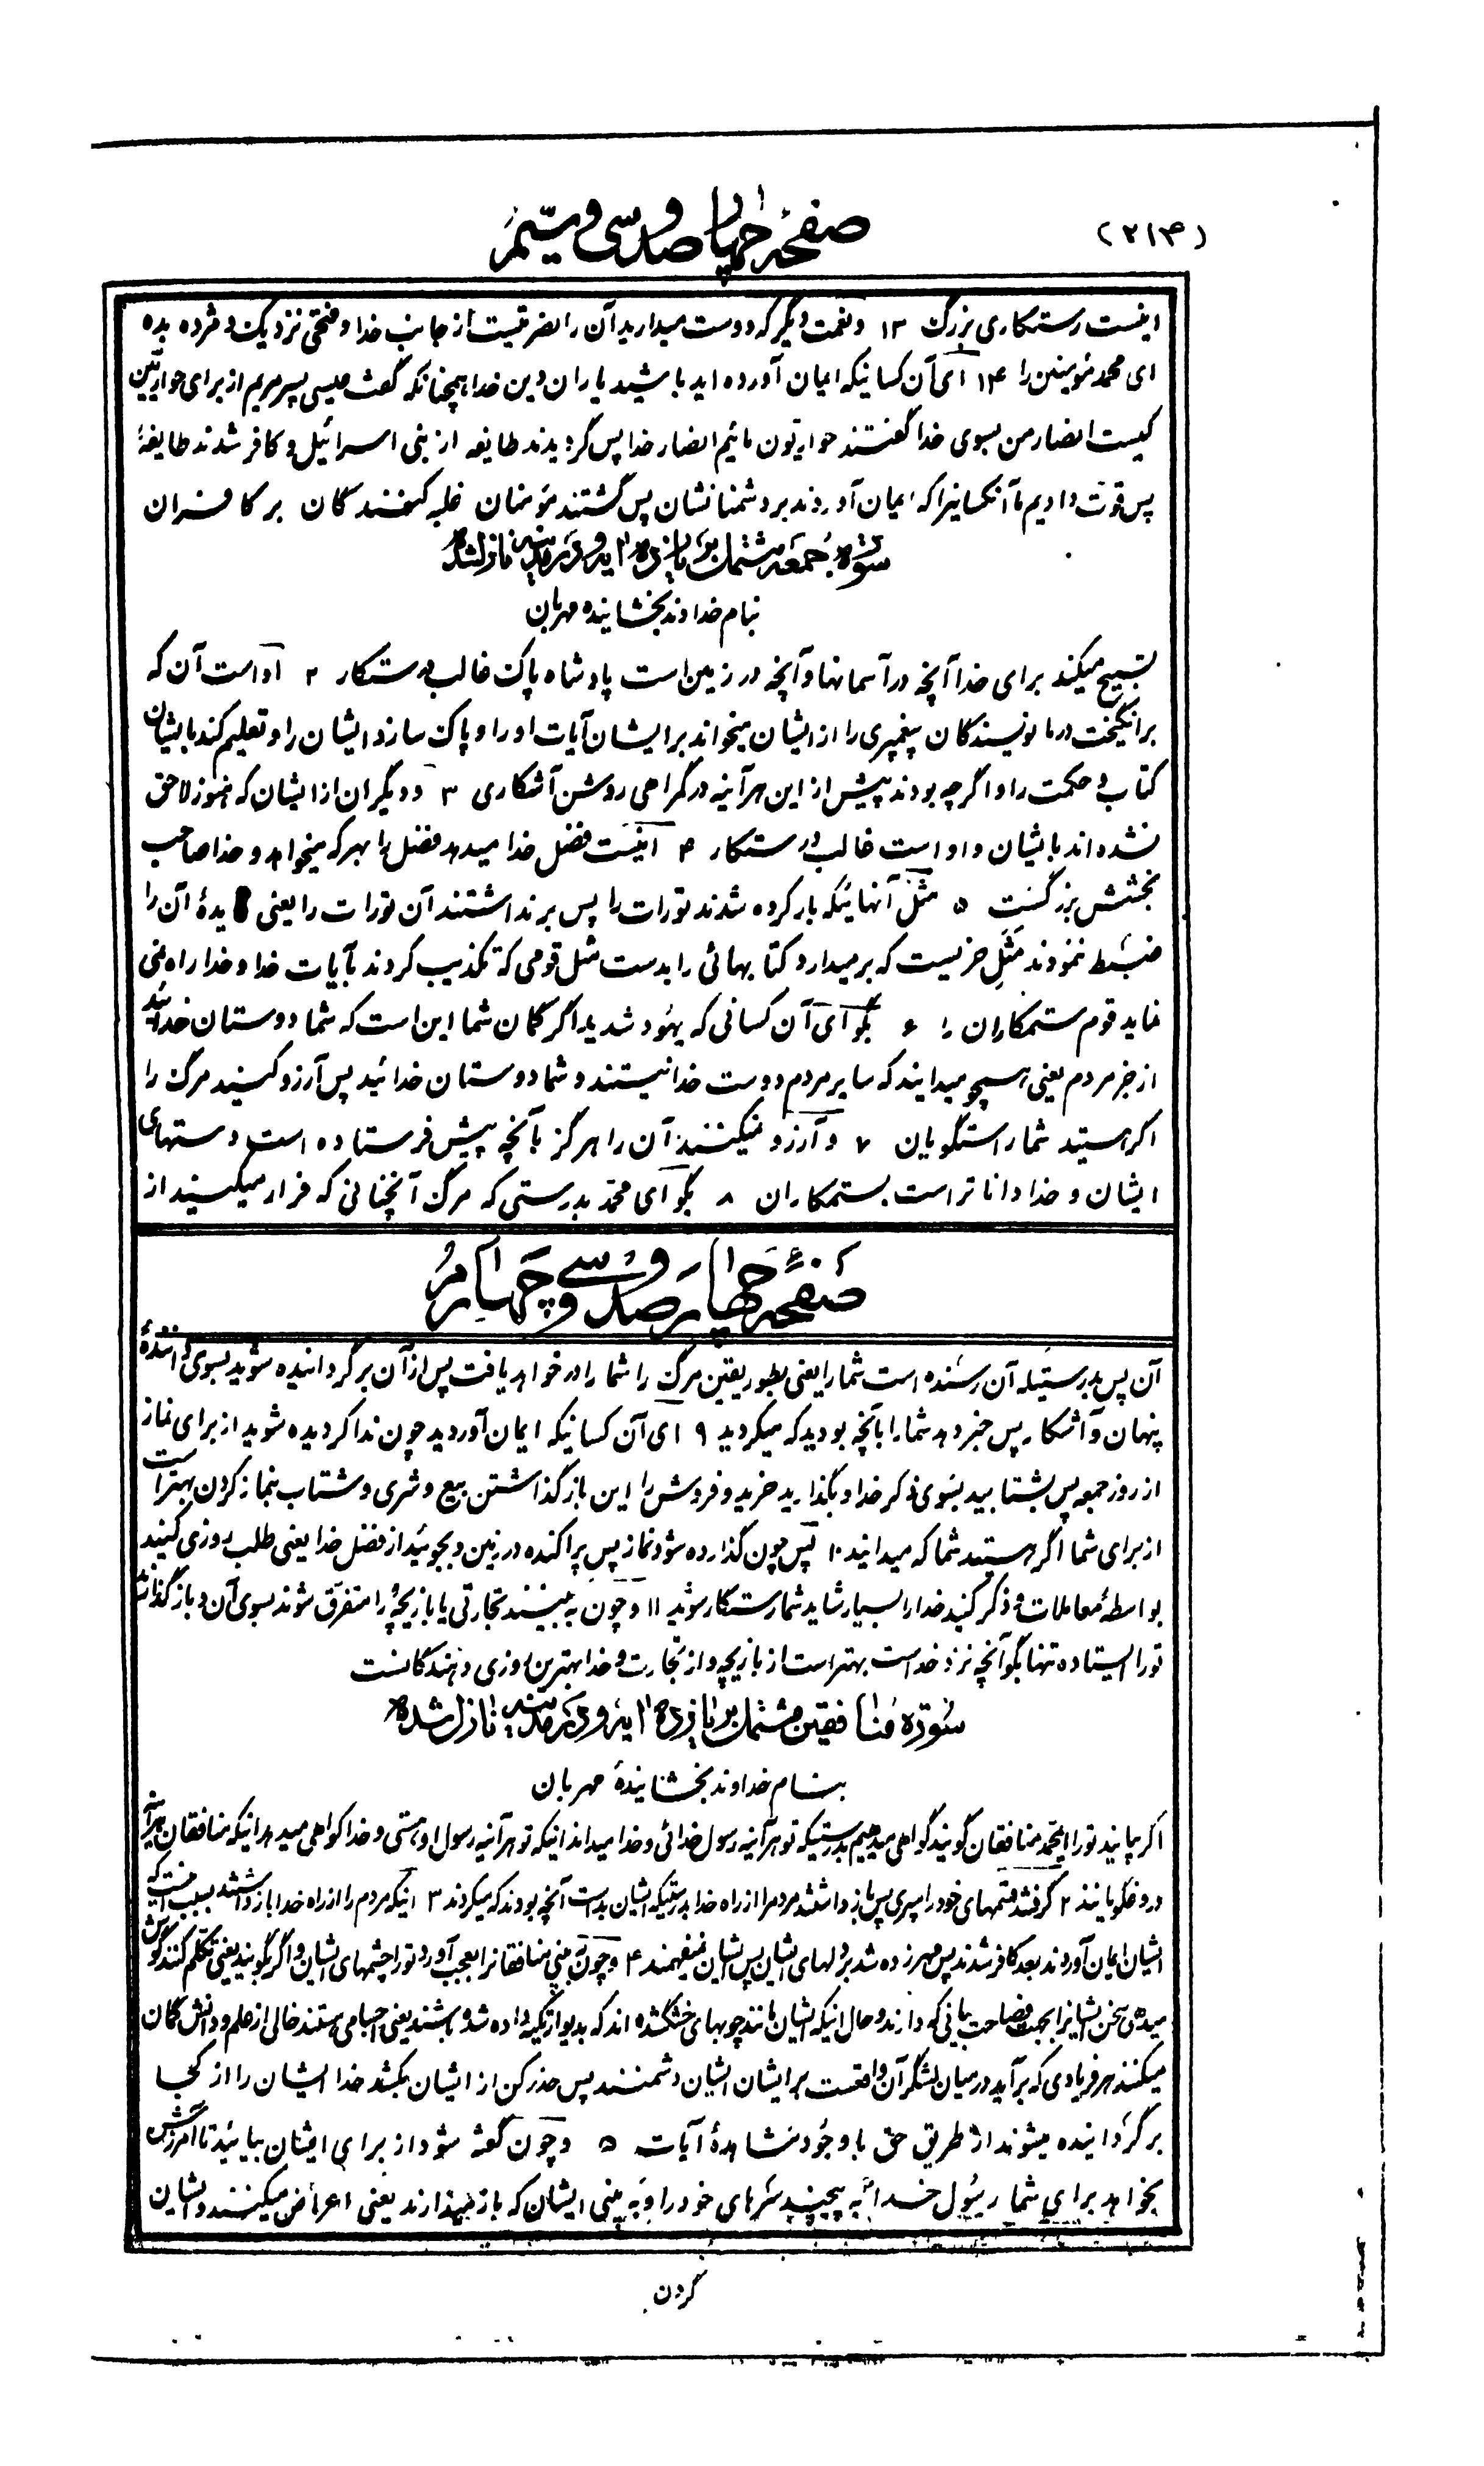 (۲۱۴)
صفحه چهار صد و سی و سیم
اینست رستکاری بزرگ ۱۳ و نعمت دیگر که دوست میدارید آن را نصرتیست از جانب خدا و فتحی نزدیک و مژده بده
ای محمد مؤمنین را ۱۴ ای آن کسانیکه ایمان آورده اید باشید یاران دین خدا همچنانکه گفت عیسی پسر مریم از برای حواریین
کیست انصار من بسوی خدا گفتند حواریون مائیم انصار خدا پس گردیدند طایفه از بنی اسرائیل و کافر شدند طایفهٔ
پس قوت دادیم ما آنکسانیرا که ایمان آوردند بر دشمنانشان پس گشتند مؤمنان غلبه کنندگان بر کافران
سوره جمعه مشتمل بر یازده ایه و در مدینه نازل شده
بنام خداوند بخشاینده مهربان
تسبیح میکند برای خدا آنچه در آسمانها و آنچه در زمین است پادشاه پاک غالب درستکار ۲ او است آن که
برانگیخت در نانویسندگان پیغمبری را از ایشان میخواند بر ایشان آیات او را و پاک سازد ایشان را و تعلیم کند بایشان
کتاب و حکمت را و اگر چه بودند پیش از این هر آینه در گمراهی روشن آشکاری ۳ و دیگران از ایشان که هنوز لاحق
نشده اند بایشان و او است غالب درستکار ۴ اینست فضل خدا میدهد فضل را بهر که میخواهد و خدا صاحب
بخشش بزرگست ۵ مثل آنهائیکه بار کرده شدند تورات را پس برنداشتند آن تورات را یعنی یدهٔ آن را
ضبط ننمودند مثل خریست که برمیدارد کتابهائی را بدست مثل قومی که تکذیب کردند بآیات خدا و خدا راه نمی
نماید قوم ستمکاران را ۶ بگو ای آن کسانی که یهود شدید اگر گمان شما این است که شما دوستان خدائید
از جز مردم یعنی همچو میدانید که سایر مردم دوست خدا نیستند و شما دوستان خدائید پس آرزو کنید مرگ را
اگر هستید شما راستگویان ۷ و آرزو نمیکنند آن را هرگز بآنچه پیش فرستاده است دستهای
ایشان و خدا داناتر است بستمکاران ۸ بگو ای محمد بدرستی که مرگ آنچنانی که فرار میکنید از
صفحه چهار صد و سی و چهارم
آن پس بدرستیکه آن رسنده است شما را یعنی بطور یقین مرگ را شما را در خواهد یافت پس از آن برگردانیده شوید بسوی دانندهٔ
پنهان و آشکار پس خبر دهد شما را بآنچه بودید که میکردید ۹ ای آن کسانیکه ایمان آوردید چون ندا کردیده شوید از برای نماز
از روز جمعه پس بشتابید بسوی ذکر خدا و بگذارید خرید و فروش را این بازگذاشتن بیع و شری و شتاب بنماز کردن بهتر است
از برای شما اگر هستید شما که میدانید ۱۰ پس چون گذارده شود نماز پس پراکنده در زمین و بجوئید از فضل خدا یعنی طلب روزی کنید
بواسطهٔ معاملات و ذکر کنید خدا را بسیار شاید شما رستکار شوید ۱۱ و چون به بینند تجارتی یا بازیچه را متفرق شوند بسوی آن و باز گذاشتند
تو را ایستاده تنها بگو آنچه نزد خداست بهتر است از بازیچه و از تجارت و خدا بهترین روزی دهندگانست
سوره منافقین مشتمل بر یازده ایه و در مدینه نازل شده
بنام خداوند بخشایندهٔ مهربان
اگر بیایند تو را ایمحمد منافقان گویند گواهی میدهیم بدرستیکه تو هر آینه رسول خدائی و خدا میداند اینکه تو هر آینه رسول او هستی و خدا گواهی میدهد اینکه منافقان هر آینه
دروغگویانند ۲ گرفتند قسمهای خود را سپری پس باز داشتند مردم را از راه خدا بدرستیکه ایشان بد است آنچه بودند که میکردند ۳ اینکه مردم را از راه خدا باز داشتند بسبب اینست که
ایشان ایمان آوردند بعد کافر شدند پس مهر زده شد بر دلهای ایشان پس ایشان نمیفهمند ۴ و چون به بینی منافقانرا بعجب آورد تو را جثهای ایشان و اگر گویند یعنی تکلم کنند گوش
میدهی سخن ایشانرا بجهت فصاحت بیانی که دارند و حال اینکه ایشان مانند چوبهای خشگشده اند که بدیوار تکیه داده شده باشند یعنی اجسامی هستند خالی از علم و دانش گمان
میکنند هر فریادی که برآید در میان لشگر آن واقعست بر ایشان ایشان دشمنند پس حذر کن از ایشان بکشد خدا ایشان را از کجا
برگردانیده میشوند از طریق حق با وجود مشاهدهٔ آیات ۵ و چون گفته شود از برای ایشان بیائید تا آمرزش
بخواهد برای شما رسول خدا به پیچند سرهای خود را و به بینی ایشان که باز میدارند یعنی اعراض میکنند و ایشان
گردن